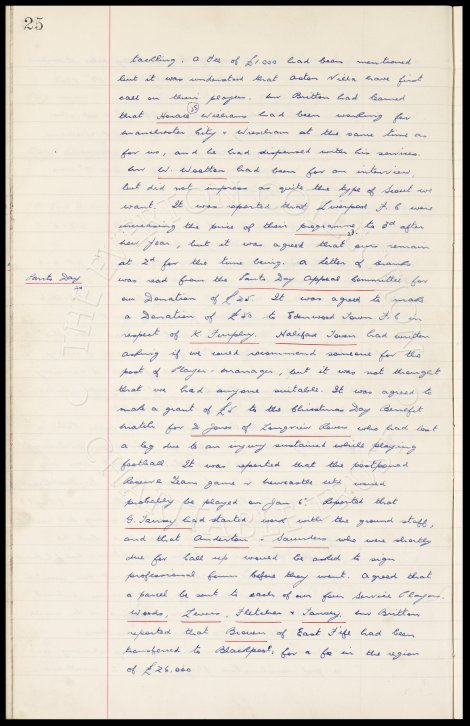 25
tackling. A fee of £1,000 had been mentioned
but it was understood that Aston Villa have first
call on their players. Mr Britton had learned
that Horace Williams had been working for
Manchester City & Wrexham at the same time as
for us, and he had dispensed with his services.
Mr W. Wootton had been for an interview,
but did not impress as quite the type of Scout we
want. It was reported that Liverpool F.C were
increasing the price of their programme to 3d after
New Year, but it was agreed that ours remain
at 2d for the time being. A letter of thanks
Lants Day
was read from the Lants Day Appeal Committee for
our Donation of £25. It was agreed to make
a Donation of to Town F.C in
respect of K. Halifax Town had written
asking if we could recommend someone for the
post of Player-manager, but it was not thought
that we had anyone suitable. It was agreed to
make a grant of £5 to the Christmas Day Benefit
match for D Jones of Longview Rovers who had lost
a leg due to an injury sustained while playing
football. It was reported that the postponed
Reserve Team game v Newcastle Utd would
probably be played on Jan 6. Reported that
G. Tansey had started work with the ground staff,
and that Anderton & Saunders who were shortly
due for call up would be asked to sign
professional forms before they went. Agreed that
a parcel be sent to each of our four Service Players.
Woods, Lewis, Fletcher & Tansey. Mr Britton
reported that Brown of East Fife had been
transferred to Blackpool for a fee in the region
of £26,000